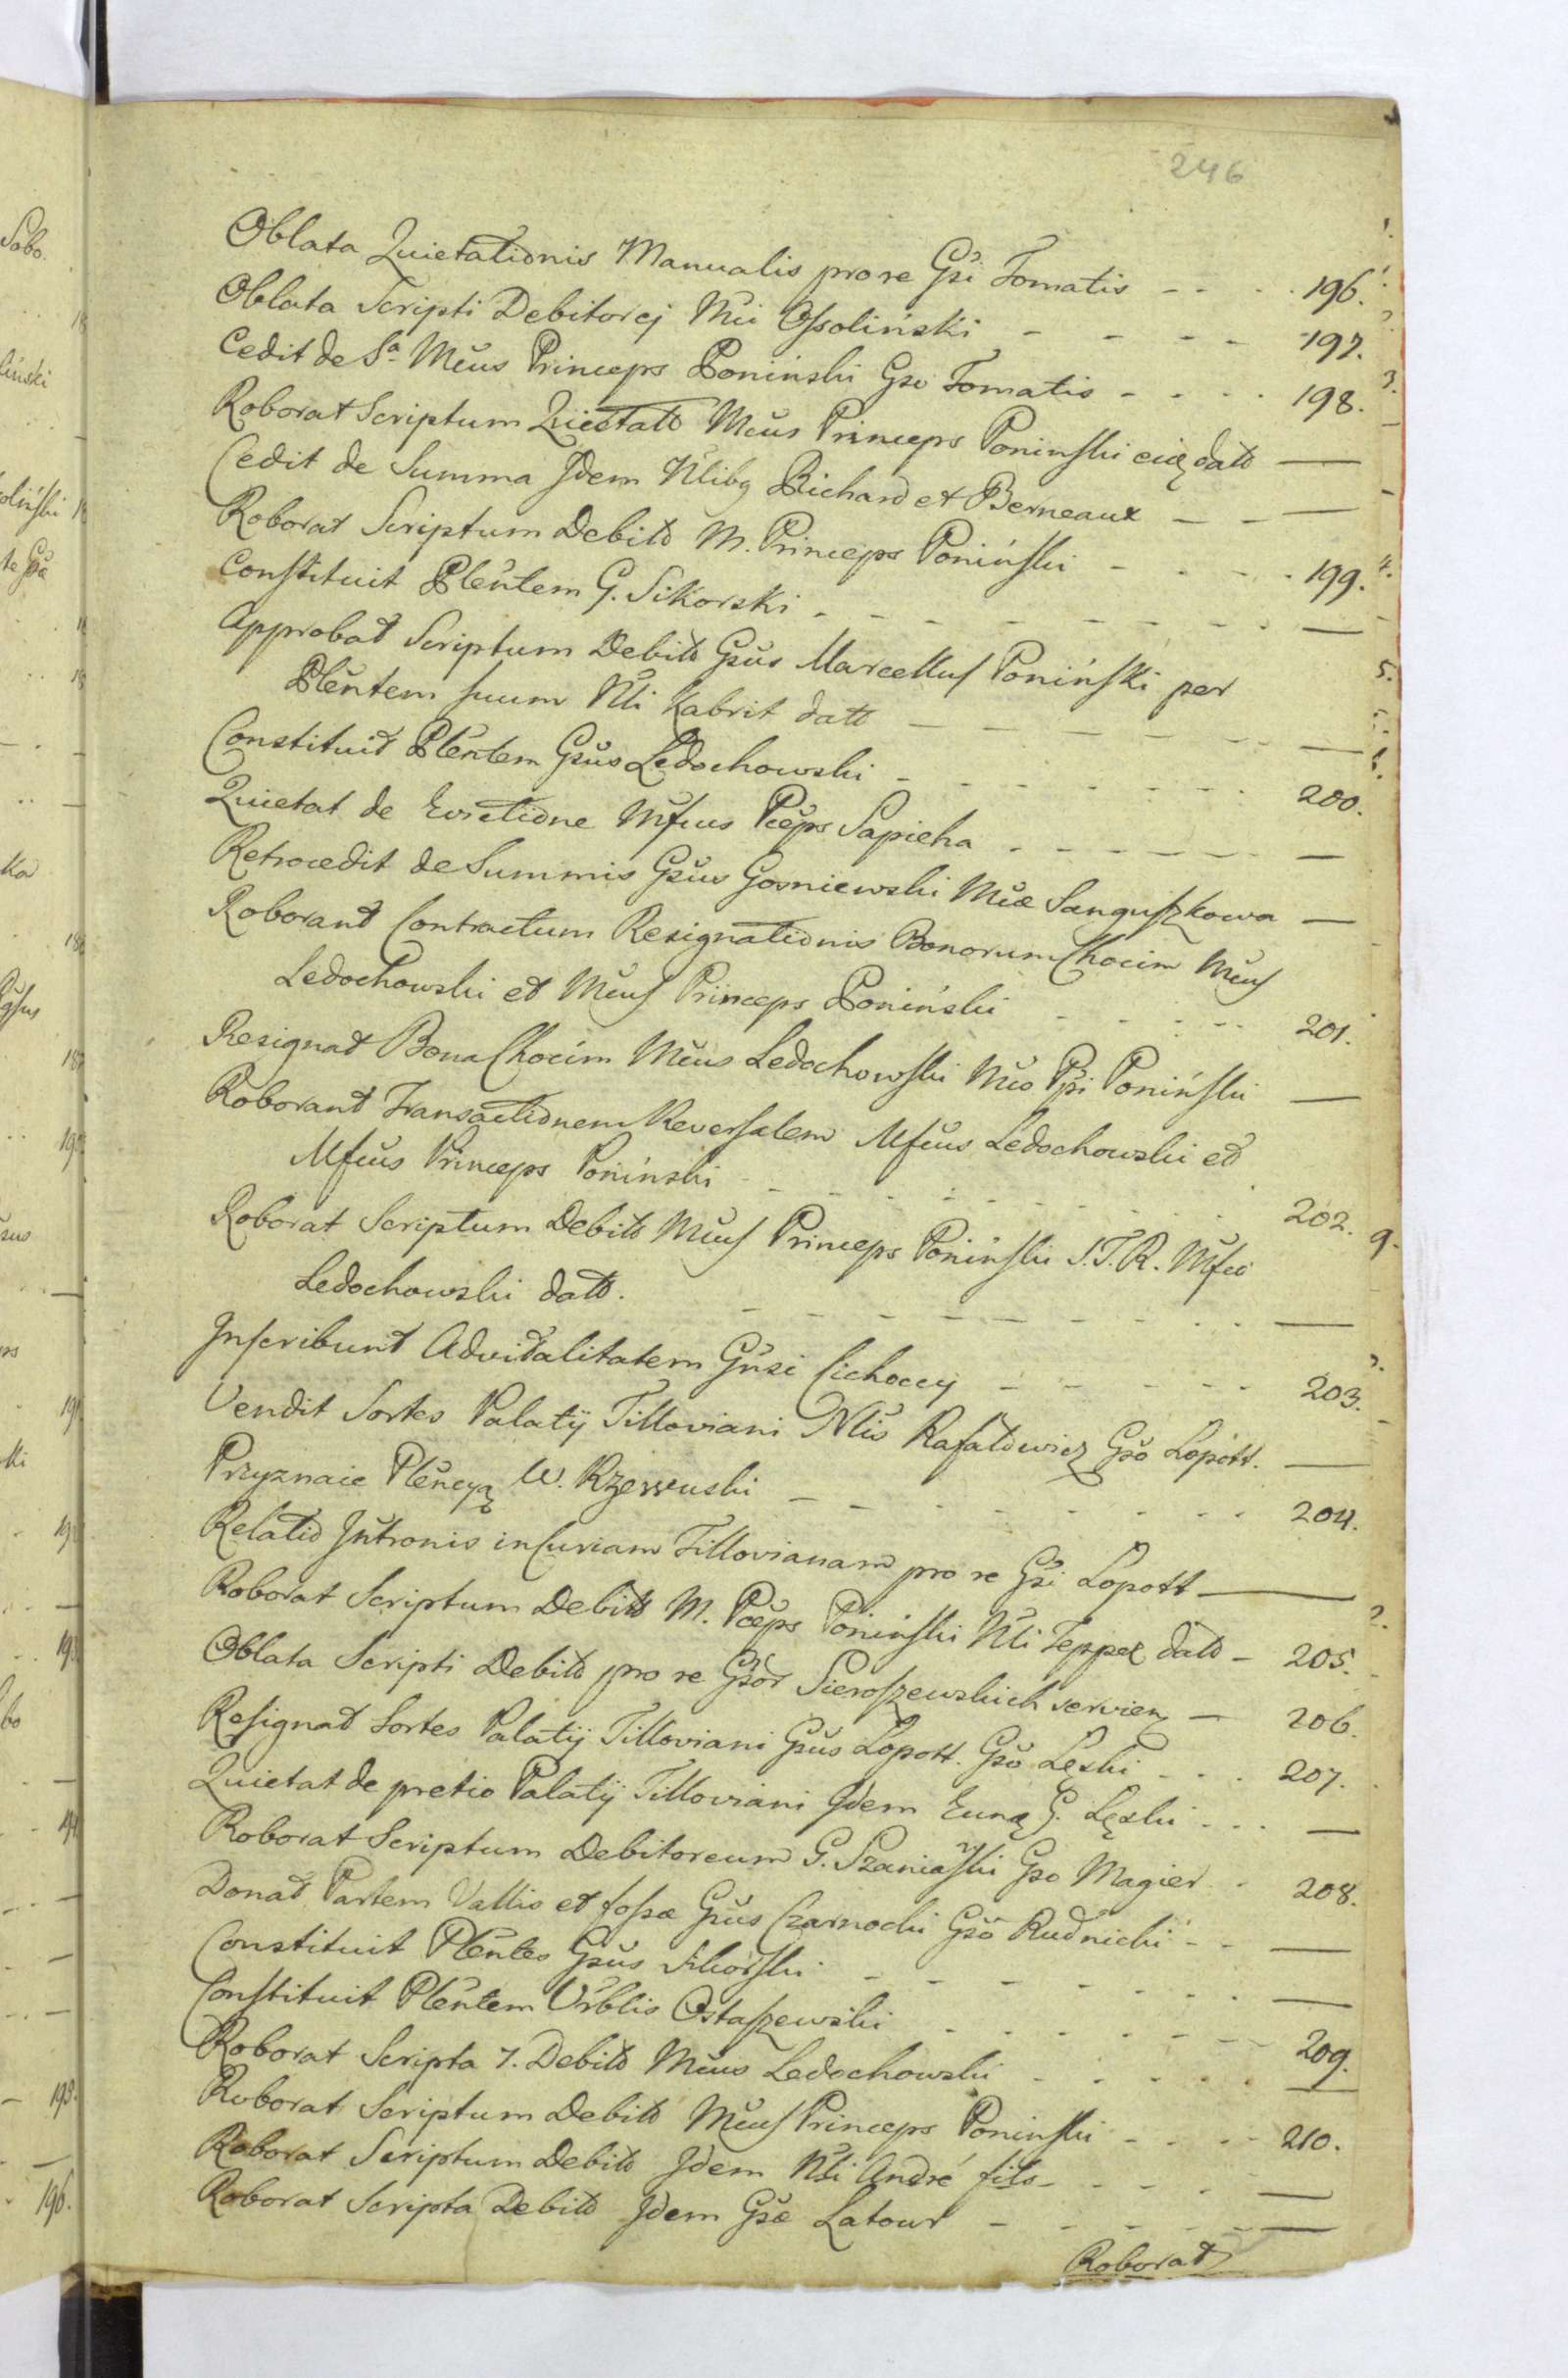 246
Oblata Quietationis Manualis pro re Gsi Tomatis - - - . 196.
Oblata Scripti Debitorej Mci Ossoliński - - - - 197.
Cedit de Sa Mcus Princeps Poniński Gso Tomatis - - - . 198.
Roborat Scriptum Quietato Mcus Princeps Poninski dato —
Cedit de Summa Idem Nlibq Richard et Berneaux - - —
Roborat Scriptum Debito M. Princeps Poniński - - - - . 199.
Constituit Plentem G. Sikorski - - - - - - - . —
Approbat Scriptum Debito Gsus Marcellus Poniński per
Plentem suum Nli Kabrit dato - - - - - - - —
Constituit Plentem Gsus Ledochowski - - - - - - . 200.
Quietat de Evictione Mfcus Pceps Sapieha - - - - - —
Retrocedit de Summis Gsus Gosniewski Mcæ Sanguszkowa —
Roborant Contractum Resignationis Bonorum Chocim Mcus
Ledochowski et Mcus Princeps Poniński - - - - - 201.
Resignat Bona Chocim Mcus Ledochowski Mco Ppi Poniński —
Roborant Transactionem Reversalem Mfcus Ledochowski et
Mfcus Princeps Poniński - - - - - - - - - 202.
Roborat Scriptum Debito Mcus Princeps Poniński S.T.R. Mfco
Ledochowski dato. - - - - - - - - . —
Inscribunt Advitalitatem Gnsi Cichoccy - - - - - 203.
Vendit Sortes Palatij Tilloviani Nlis Rafałowicz Gso Lopott. —
Przyznaie Plencyą W. Rzewuski - - - - - - - . 204.
Relatio Intronis in Curiam Tillovianam pro re Gsi Lopott —
Roborat Scriptum Debito M. Pceps Poniński Nli Tepper dato - 205.
Oblata Scripti Debito pro re Gsor Sieroszewskich servien — 206.
Resignat Sortes Palatij Tilloviani Gsus Lopott. Gso Lęski - - . 207.
Quietat de pretio Palatij Tilloviani Idem Eunq G. Lęski - - . —
Roborat Scriptum Debitoreum G. Szaniawski Gso Magier - 208.
Donat Partem Vallis et fossæ Gsus Czarnocki Gso Rudnicki - - —
Constituit Plentes Gsus Sikorski - - - - - - - . —
Constituit Plentem Vrblis Ostaszewski - - - - - - 209.
Roborat Scripta 7. Debito Mcus Ledochowski - - - - . —
Roborat Scriptum Debito Mcus Princeps Poninski - - - - 210.
Roborat Scriptum Debito Idem Nli André fils - - - - —
Roborat Scripta Debito Idem Gsæ Latour - - - - - —
Roborat